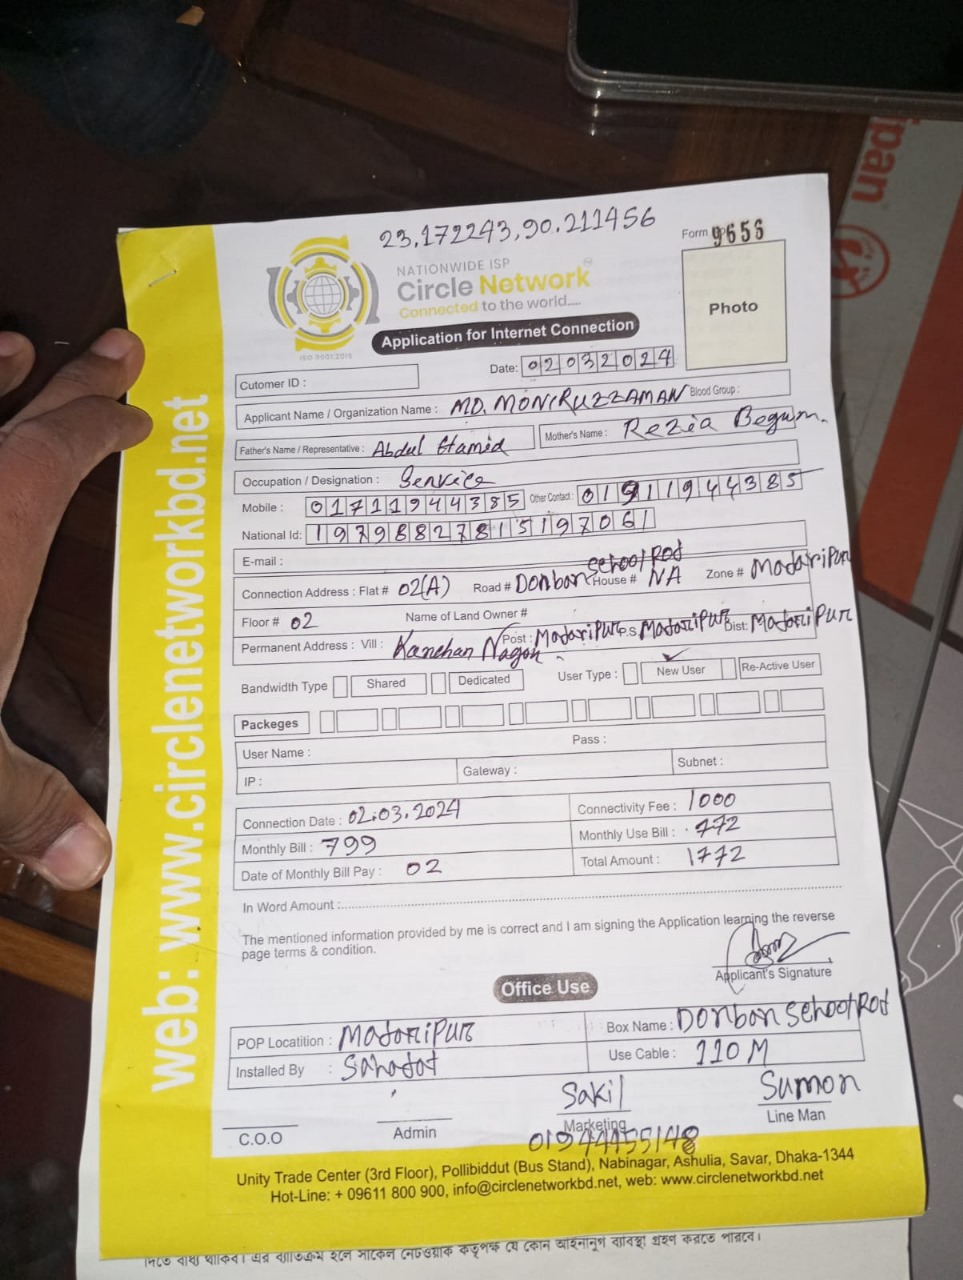 23.172243,90.211456
Form 9656
NATIONWIDE ISP
Circle Network
Connected to the world....
ISO 9001:2015
Application for Internet Connection
Photo
Date: 02032024
Cutomer ID :
Applicant Name / Organization Name : MD. MONIRUZZAMAN Blood Group :
Father's Name / Representative : Abdul Hamid Mother's Name : Rezia Begum.
Occupation / Designation : Service
Mobile : 01711944385 Other Contact : 01911944385
National Id: 19798827815197061
E-mail :
Connection Address : Flat # 02(A) Road # Donbon School Rod House # NA Zone # Madaripur
Floor # 02 Name of Land Owner #
Permanent Address : Vill : Kanchan Nagor Post : Madaripur P.S Madaripur Dist: Madaripur
Bandwidth Type Shared Dedicated User Type : New User Re-Active User
Packeges
User Name : Pass :
IP : Gateway : Subnet :
Connection Date : 02.03.2024 Connectivity Fee : 1000
Monthly Bill : 799 Monthly Use Bill : 772
Date of Monthly Bill Pay : 02 Total Amount : 1772
In Word Amount :
The mentioned information provided by me is correct and I am signing the Application learning the reverse
page terms & condition.
Applicant's Signature
Office Use
POP Locatition : Madaripur Box Name : Donbon School Rod
Installed By : Sahadat Use Cable : 110 M
Sakil Sumon
C.O.O Admin Marketing Line Man
01944455148
Unity Trade Center (3rd Floor), Pollibiddut (Bus Stand), Nabinagar, Ashulia, Savar, Dhaka-1344
Hot-Line: + 09611 800 900, info@circlenetworkbd.net, web: www.circlenetworkbd.net
web: www.circlenetworkbd.net
দিতে বাধ্য থাকিব। এর ব্যাতিক্রম হলে সার্কেল নেটওয়ার্ক কতৃপক্ষ যে কোন আইনানুগ ব্যাবস্থা গ্রহণ করতে পারবে।
ipan